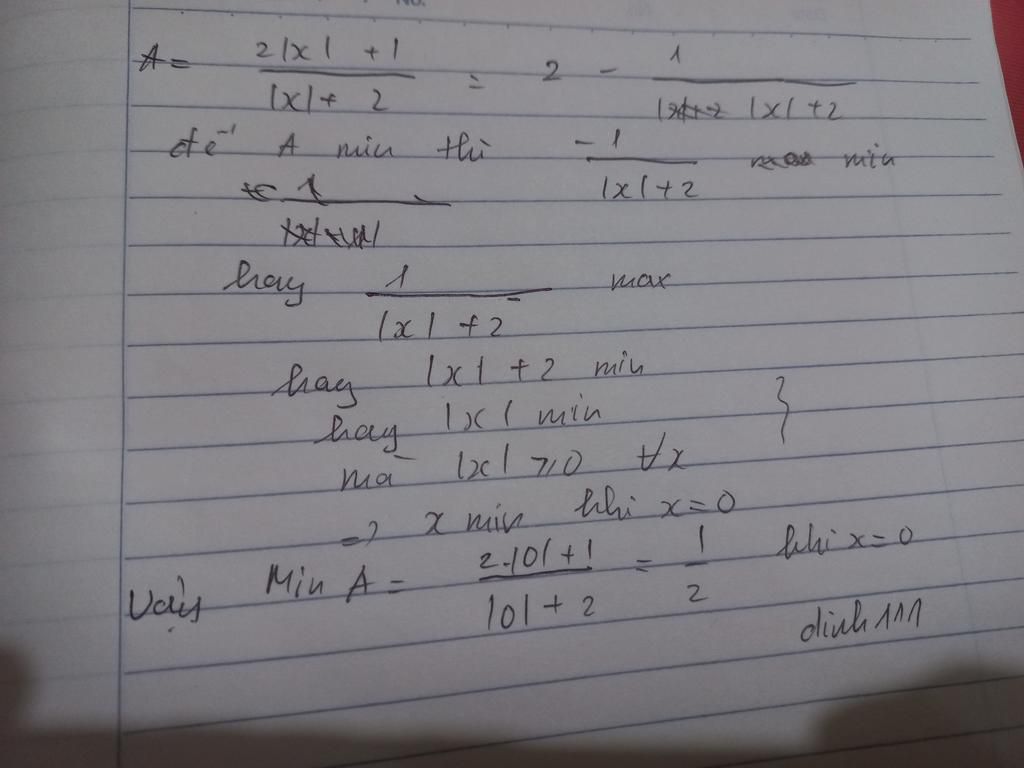 A = (2|x| + 1)/(|x| + 2) = 2 - 1/(|x| + 2)
để A min thì -1/(|x| + 2) min
hay 1/(|x| + 2) max
hay |x| + 2 min
hay |x| min }
mà |x| ≥ 0 ∀x
=> x min khi x = 0
Vậy Min A = (2.|0| + 1)/(|0| + 2) = 1/2 khi x = 0
dinh111